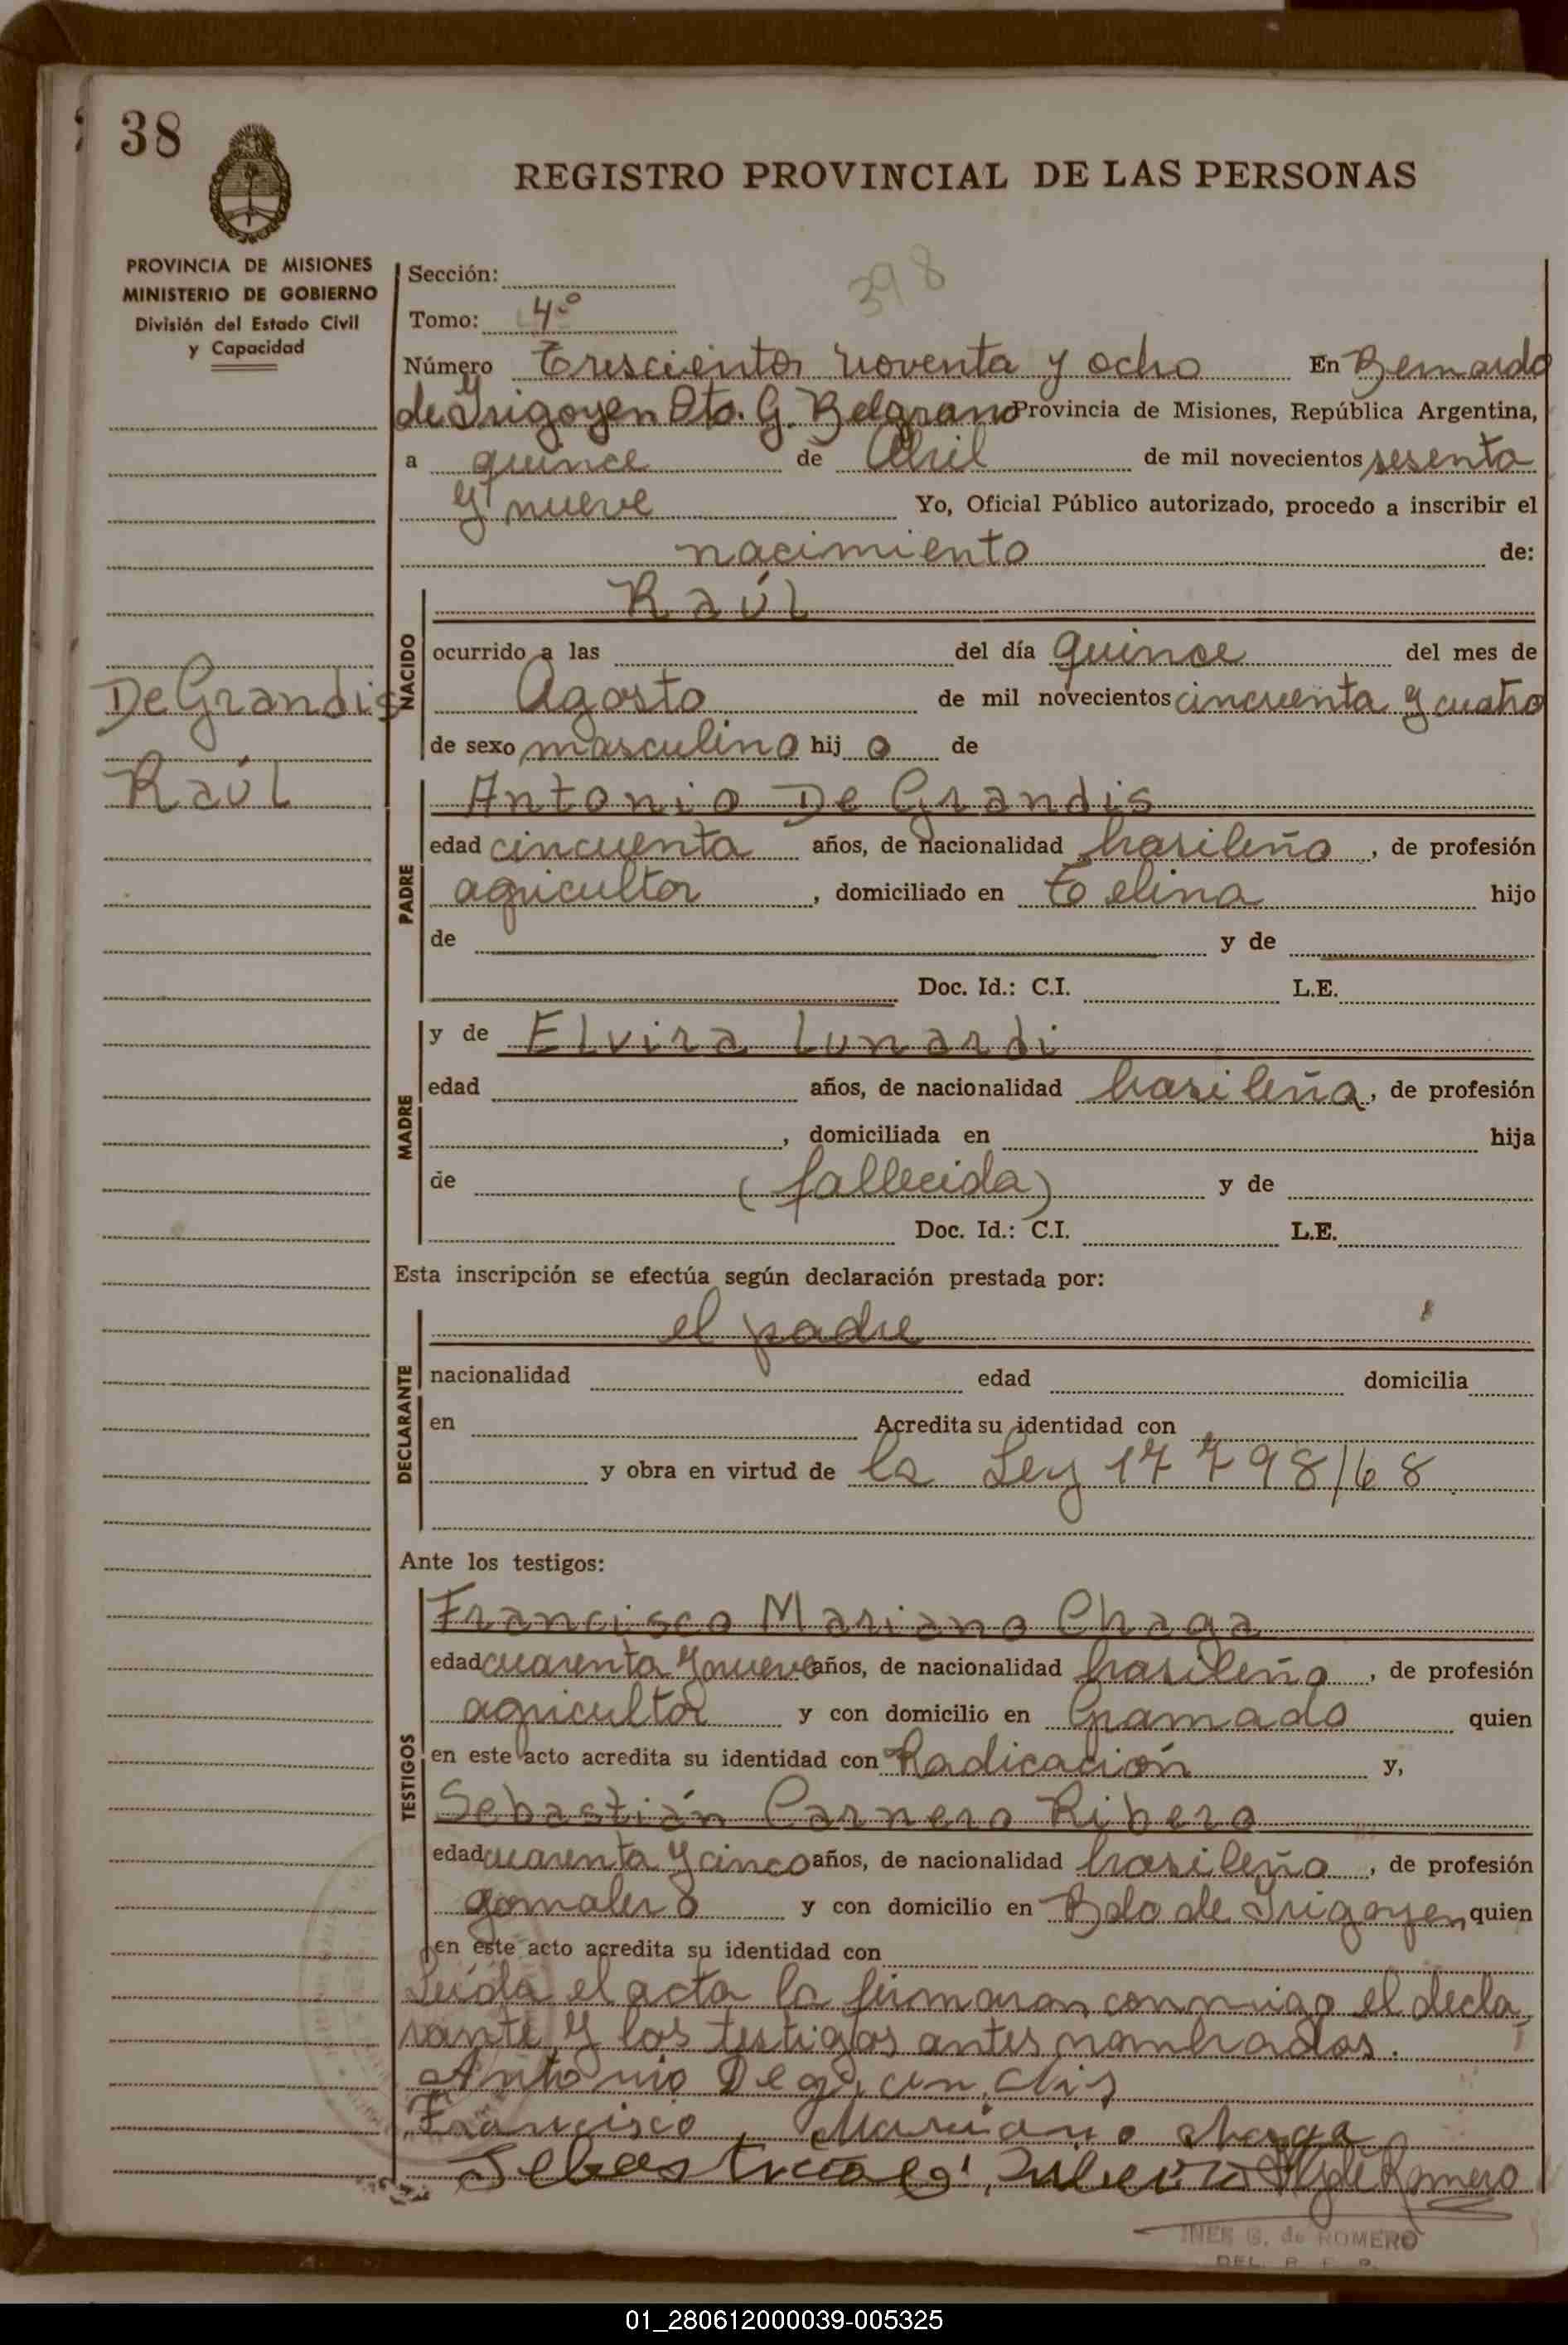 38
REGISTRO PROVINCIAL DE LAS PERSONAS
PROVINCIA DE MISIONES
MINISTERIO DE GOBIERNO
División del Estado Civil
y Capacidad
Sección:
398
Tomo: 4º
Número Trescientos noventa y ocho En Bernardo
de Irigoyen Dto. G. Belgrano Provincia de Misiones, República Argentina,
a quince de Abril de mil novecientos sesenta
y nueve Yo, Oficial Público autorizado, procedo a inscribir el
nacimiento de:
De Grandis
Raúl
NACIDO
Raúl
ocurrido a las del día quince del mes de
Agosto de mil novecientos cincuenta y cuatro
de sexo masculino hij o de
PADRE
Antonio De Grandis
edad cincuenta años, de nacionalidad brasileño, de profesión
agricultor, domiciliado en Tobelina hijo
de y de
Doc. Id.: C.I. L.E.
MADRE
y de Elvira Lunardi
edad años, de nacionalidad brasileña, de profesión
, domiciliada en hija
de (fallecida) y de
Doc. Id.: C.I. L.E.
Esta inscripción se efectúa según declaración prestada por:
DECLARANTE
el padre
nacionalidad edad domicilia
en Acredita su identidad con
y obra en virtud de la Ley 17798/68
Ante los testigos:
TESTIGOS
Francisco Mariano Chaga
edad cuarenta y nueve años, de nacionalidad brasileño, de profesión
agricultor y con domicilio en Gramado quien
en este acto acredita su identidad con Radicación y,
Sebastián Carnero Ribero
edad cuarenta y cinco años, de nacionalidad brasileño, de profesión
y con domicilio en Bdo de Irigoyen, quien
en este acto acredita su identidad con
Leída el acta la firmaran conmigo el decla
rante y los testigos antes nombrados.
Antonio Degrandis
Francisco Mariano chaga
Romero
INES G. de ROMERO
DEL. R. P. P.
01_280612000039-005325